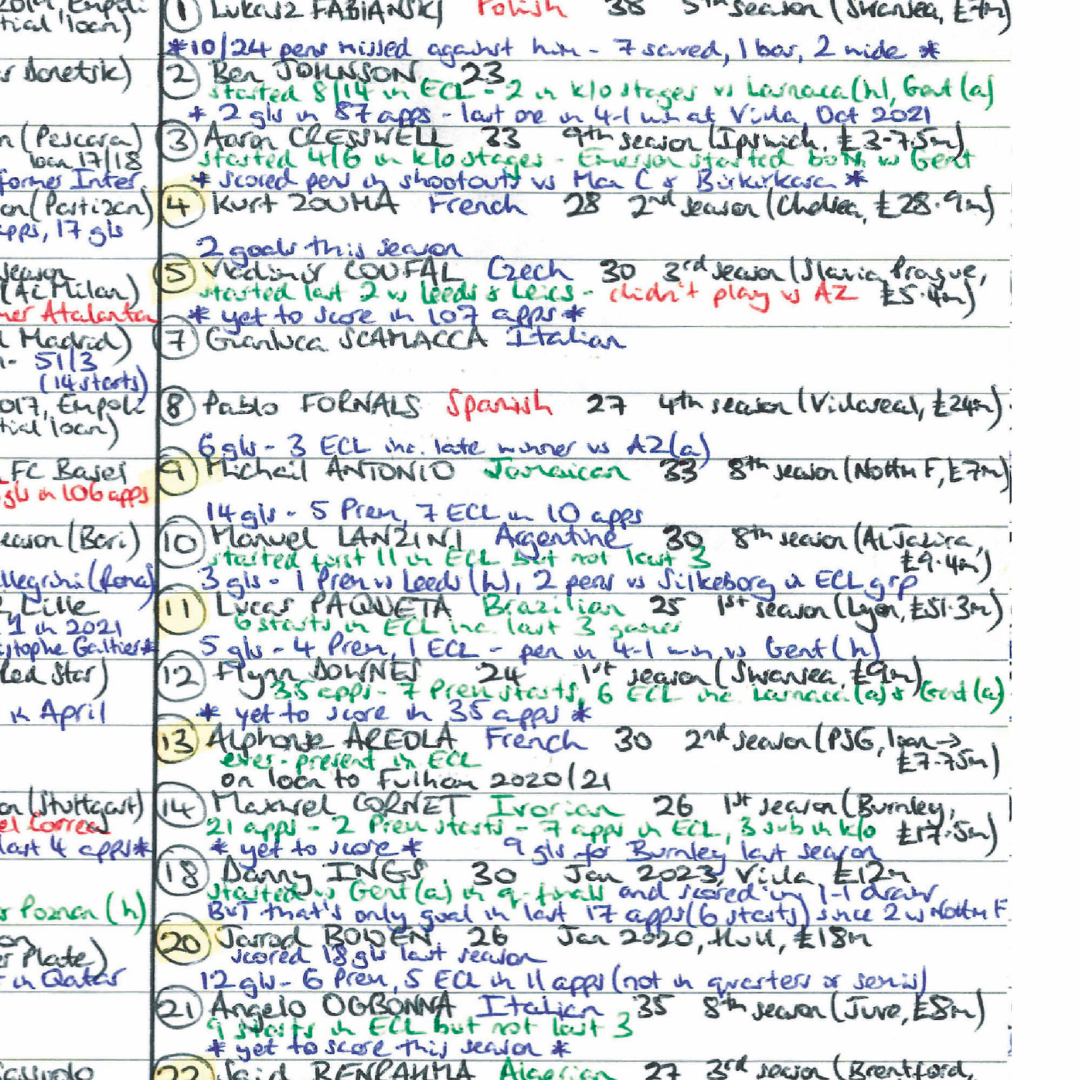 2019, Empoli
tial loan)
r Donetsk)
n (Pescara)
loan 17/18
former Inter
on (Partizan)
apps, 17 gls
season
(AC Milan)
ner Atalanta
l Madrid)
- 51/3
(14 starts)
2017, Empoli
tial loan)
FC Basel
gls in 106 apps
eason (Bari)
llegrini (Roma)
, Lille
1 in 2021
istophe Galtier*
Red Star)
in April
on (Stuttgart)
el Correa
last 4 apps*
s Poznan (h)
on
r Plate)
t in Qatar
Sassuolo
1 Lukasz FABIANSKI Polish 38 5th season (Swansea, £7m)
*10/24 pens missed against him - 7 saved, 1 bar, 2 wide *
2 Ben JOHNSON 23
started 8/14 in ECL - 2 in k/o stages vs Larnaca (h), Gent (a)
* 2 gls in 87 apps - last one in 4-1 win at Villa, Oct 2021
3 Aaron CRESSWELL 33 9th season (Ipswich, £3-7.5m)
started 4/6 in k/o stages - Emerson started both vs Gent
* scored pens in shootouts vs Man C & Birkirkara *
4 Kurt ZOUMA French 28 2nd season (Chelsea, £28.9m)
2 goals this season
5 Vladimir COUFAL Czech 30 3rd season (Slavia Prague,
started last 2 vs Leeds & Leics - didn't play vs AZ £5.4m)
* yet to score in 107 apps *
7 Gianluca SCAMACCA Italian
8 Pablo FORNALS Spanish 27 4th season (Villareal, £24m)
6 gls - 3 ECL inc. late winner vs AZ (a)
9 Michail ANTONIO Jamaican 33 8th season (Nottm F, £7m)
14 gls - 5 Prem, 7 ECL in 10 apps
10 Manuel LANZINI Argentine 30 8th season (Al Jazira,
started first 11 in ECL but not last 3 £9.4m)
3 gls - 1 Prem vs Leeds (h), 2 pens vs Silkeborg in ECL grp
11 Lucas PAQUETA Brazilian 25 1st season (Lyon, £51.3m)
6 starts in ECL inc. last 3 games
5 gls - 4 Prem, 1 ECL - pen in 4-1 win vs Gent (h)
12 Flynn DOWNES 24 1st season (Swansea £9m)
35 apps - 7 Prem starts, 6 ECL inc Larnaca (a) & Gent (a)
* yet to score in 35 apps *
13 Alphonse AREOLA French 30 2nd season (PSG, loan →
ever-present in ECL £7.75m)
on loan to Fulham 2020/21
14 Maxwel CORNET Ivorian 26 1st season (Burnley,
21 apps - 2 Prem starts - 7 apps in ECL, 3 sub in k/o £17.5m)
* yet to score * 9 gls for Burnley last season
18 Danny INGS 30 Jan 2023, Villa £12m
started vs Gent (a) in q-finals and scored in 1-1 draw
BUT that's only goal in last 17 apps (6 starts) since 2 vs Nottm F
20 Jarrod BOWEN 26 Jan 2020, Hull, £18m
scored 18 gls last season
12 gls - 6 Prem, 5 ECL in 11 apps (not in quarters or semis)
21 Angelo OGBONNA Italian 35 8th season (Juve, £8m)
9 starts in ECL but not last 3
* yet to score this season *
22 Said BENRAHMA Algerian 27 3rd season (Brentford,